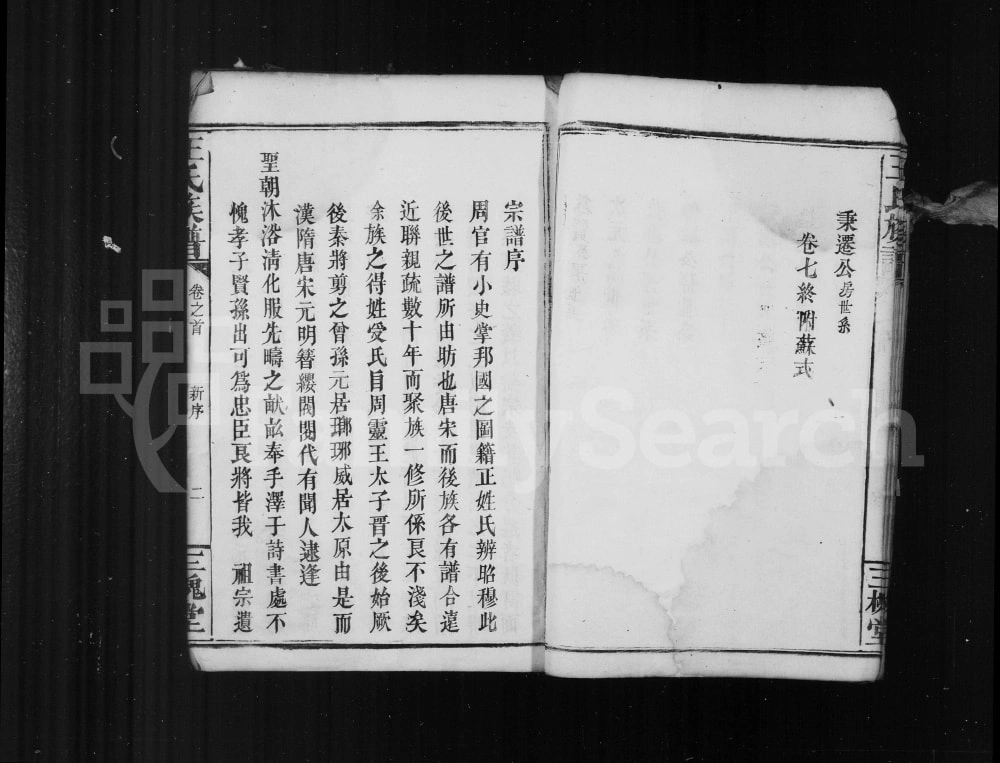 王氏族譜
三槐堂
秉遷公房世系
卷七終附蘇式
宗譜序
周官有小史掌邦國之圖籍正姓氏辨昭穆此
後世之譜所由昉也唐宋而後族各有譜合遠
近聯親疏數十年而聚族一修所係良不淺矣
余族之得姓受氏自周靈王太子晋之後始厥
後秦將剪之曾孫元居瑯琊威居太原由是而
漢隋唐宋元明簪纓閥閱代有聞人逮逢
聖朝沐浴清化服先疇之畎畝奉手澤于詩書處不
愧孝子賢孫出可爲忠臣良將皆我 祖宗遺
王氏族譜
卷之首
新序
二
三槐堂
FamilySearch